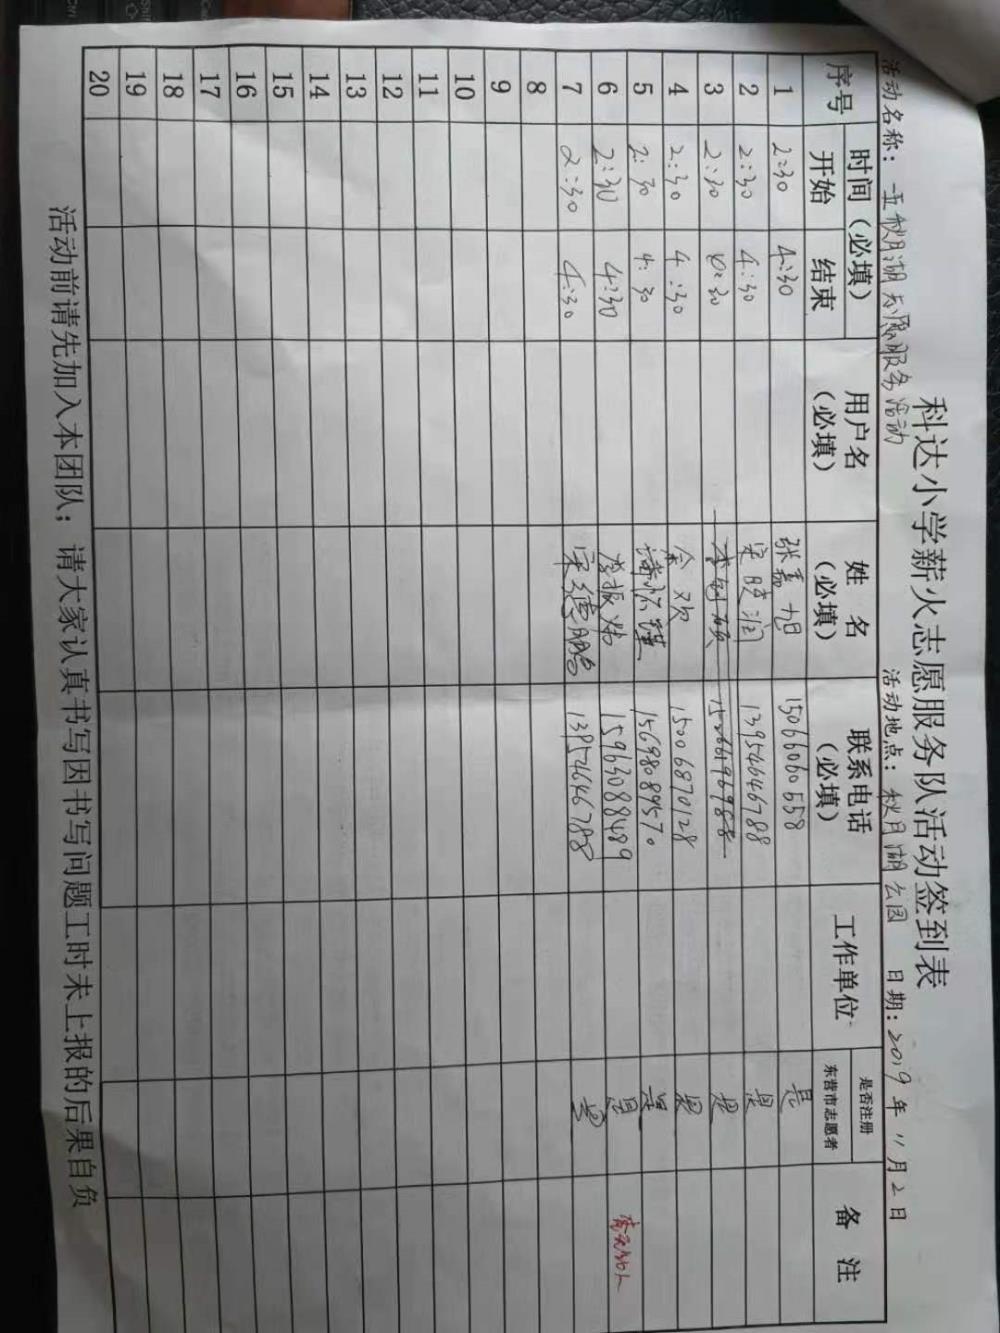 科达小学薪火志愿服务队活动签到表
活动名称：五秋月湖志愿服务活动 活动地点：秋月湖公园 日期：2019年11月2日
序号 时间（必填） 用户名（必填） 姓名（必填） 联系电话（必填） 工作单位 是否注册东营市志愿者 备注
开始 结束
1 2:30 4:30 张嘉旭 15066060558 是
2 2:30 4:30 宋晓润 13954646788 是
3 2:30 是
4 2:30 4:30 余欢 15006870128 是
5 2:30 4:30 15698089570 是
6 2:30 4:30 李振炜 15963088489 是
7 2:30 4:30 宋德鹏 13954646788 是
8
9
10
11
12
13
14
15
16
17
18
19
20
活动前请先加入本团队；请大家认真书写因书写问题工时未上报的后果自负